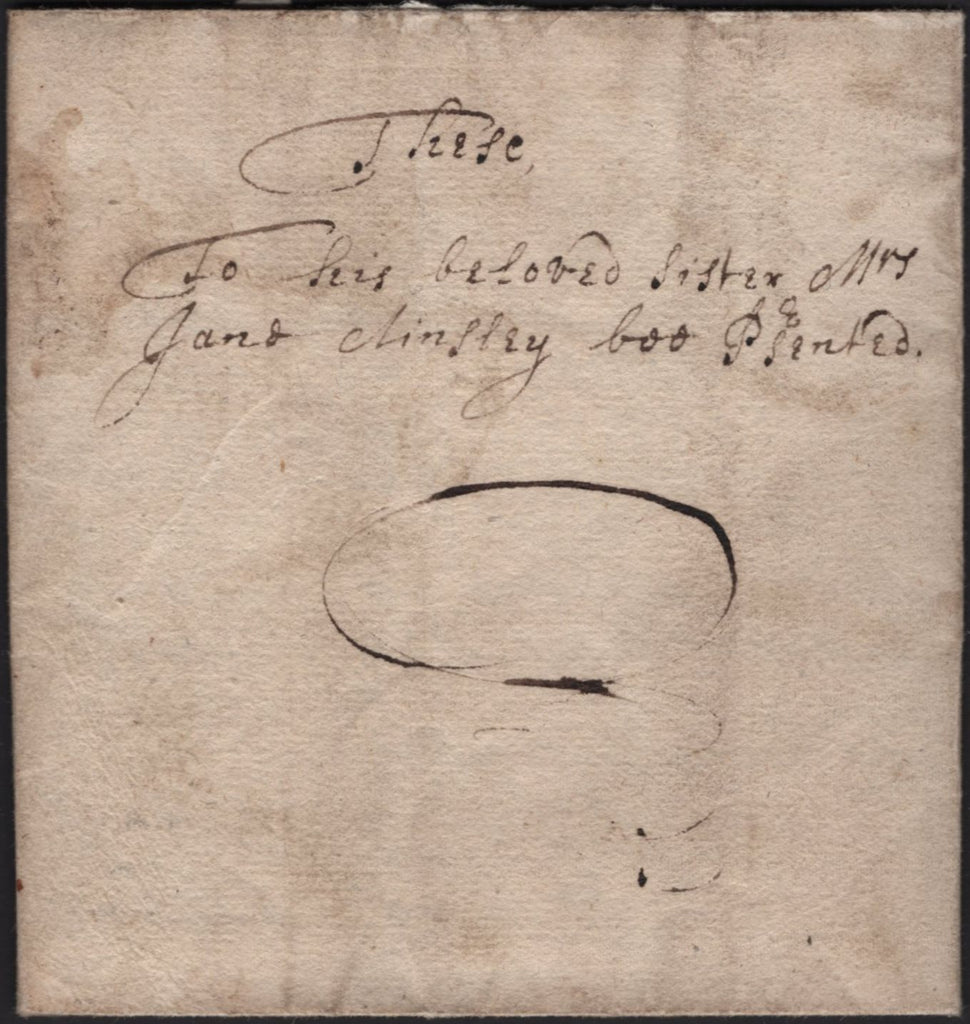 These,
To his beloved sister Mrs
Jane Ainsley bee Psented.